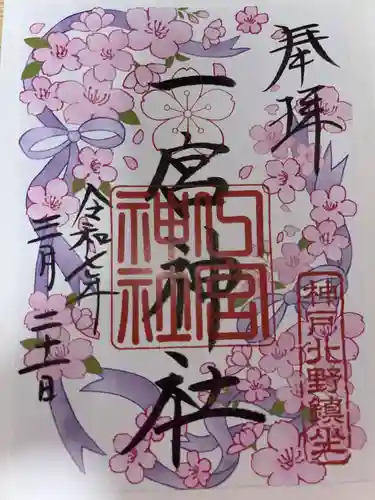 奉拝
一宮神社
令和七年
三月二十一日
一宮
神社
神戸北野鎮坐